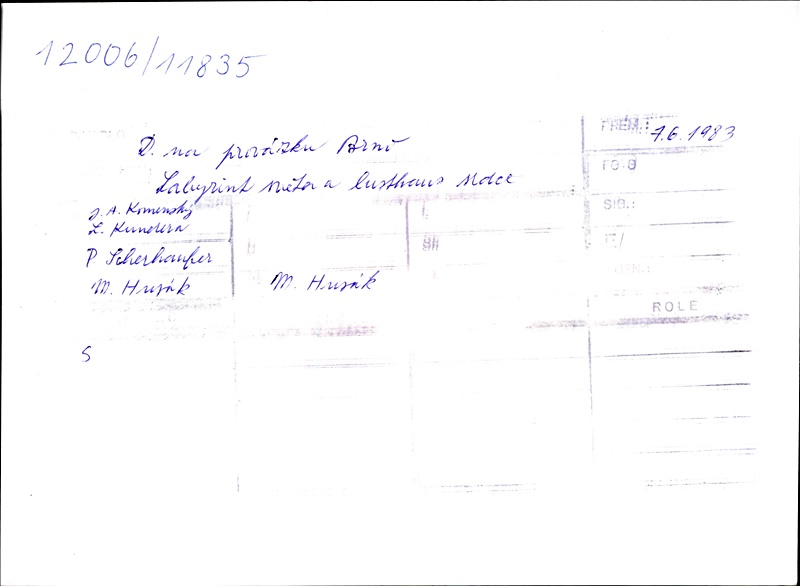 12006/11835
PREM.: 7.6.1983
D. na provázku Brno
Labyrint světa a lusthaus srdce
FOTO
J. A. Komenský
SIG.:
L. Kundera
P. Scherhaufer
M. Husák M. Husák
ROLE
5